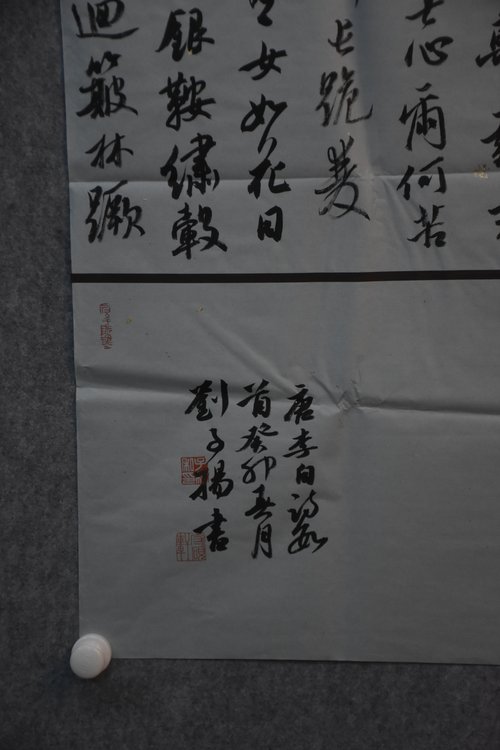 心爾何苦
長跪雙
女如花日
銀鞍繡轂
迴簸林蹶
唐李白詩數
首癸卯春月
劉子揚書